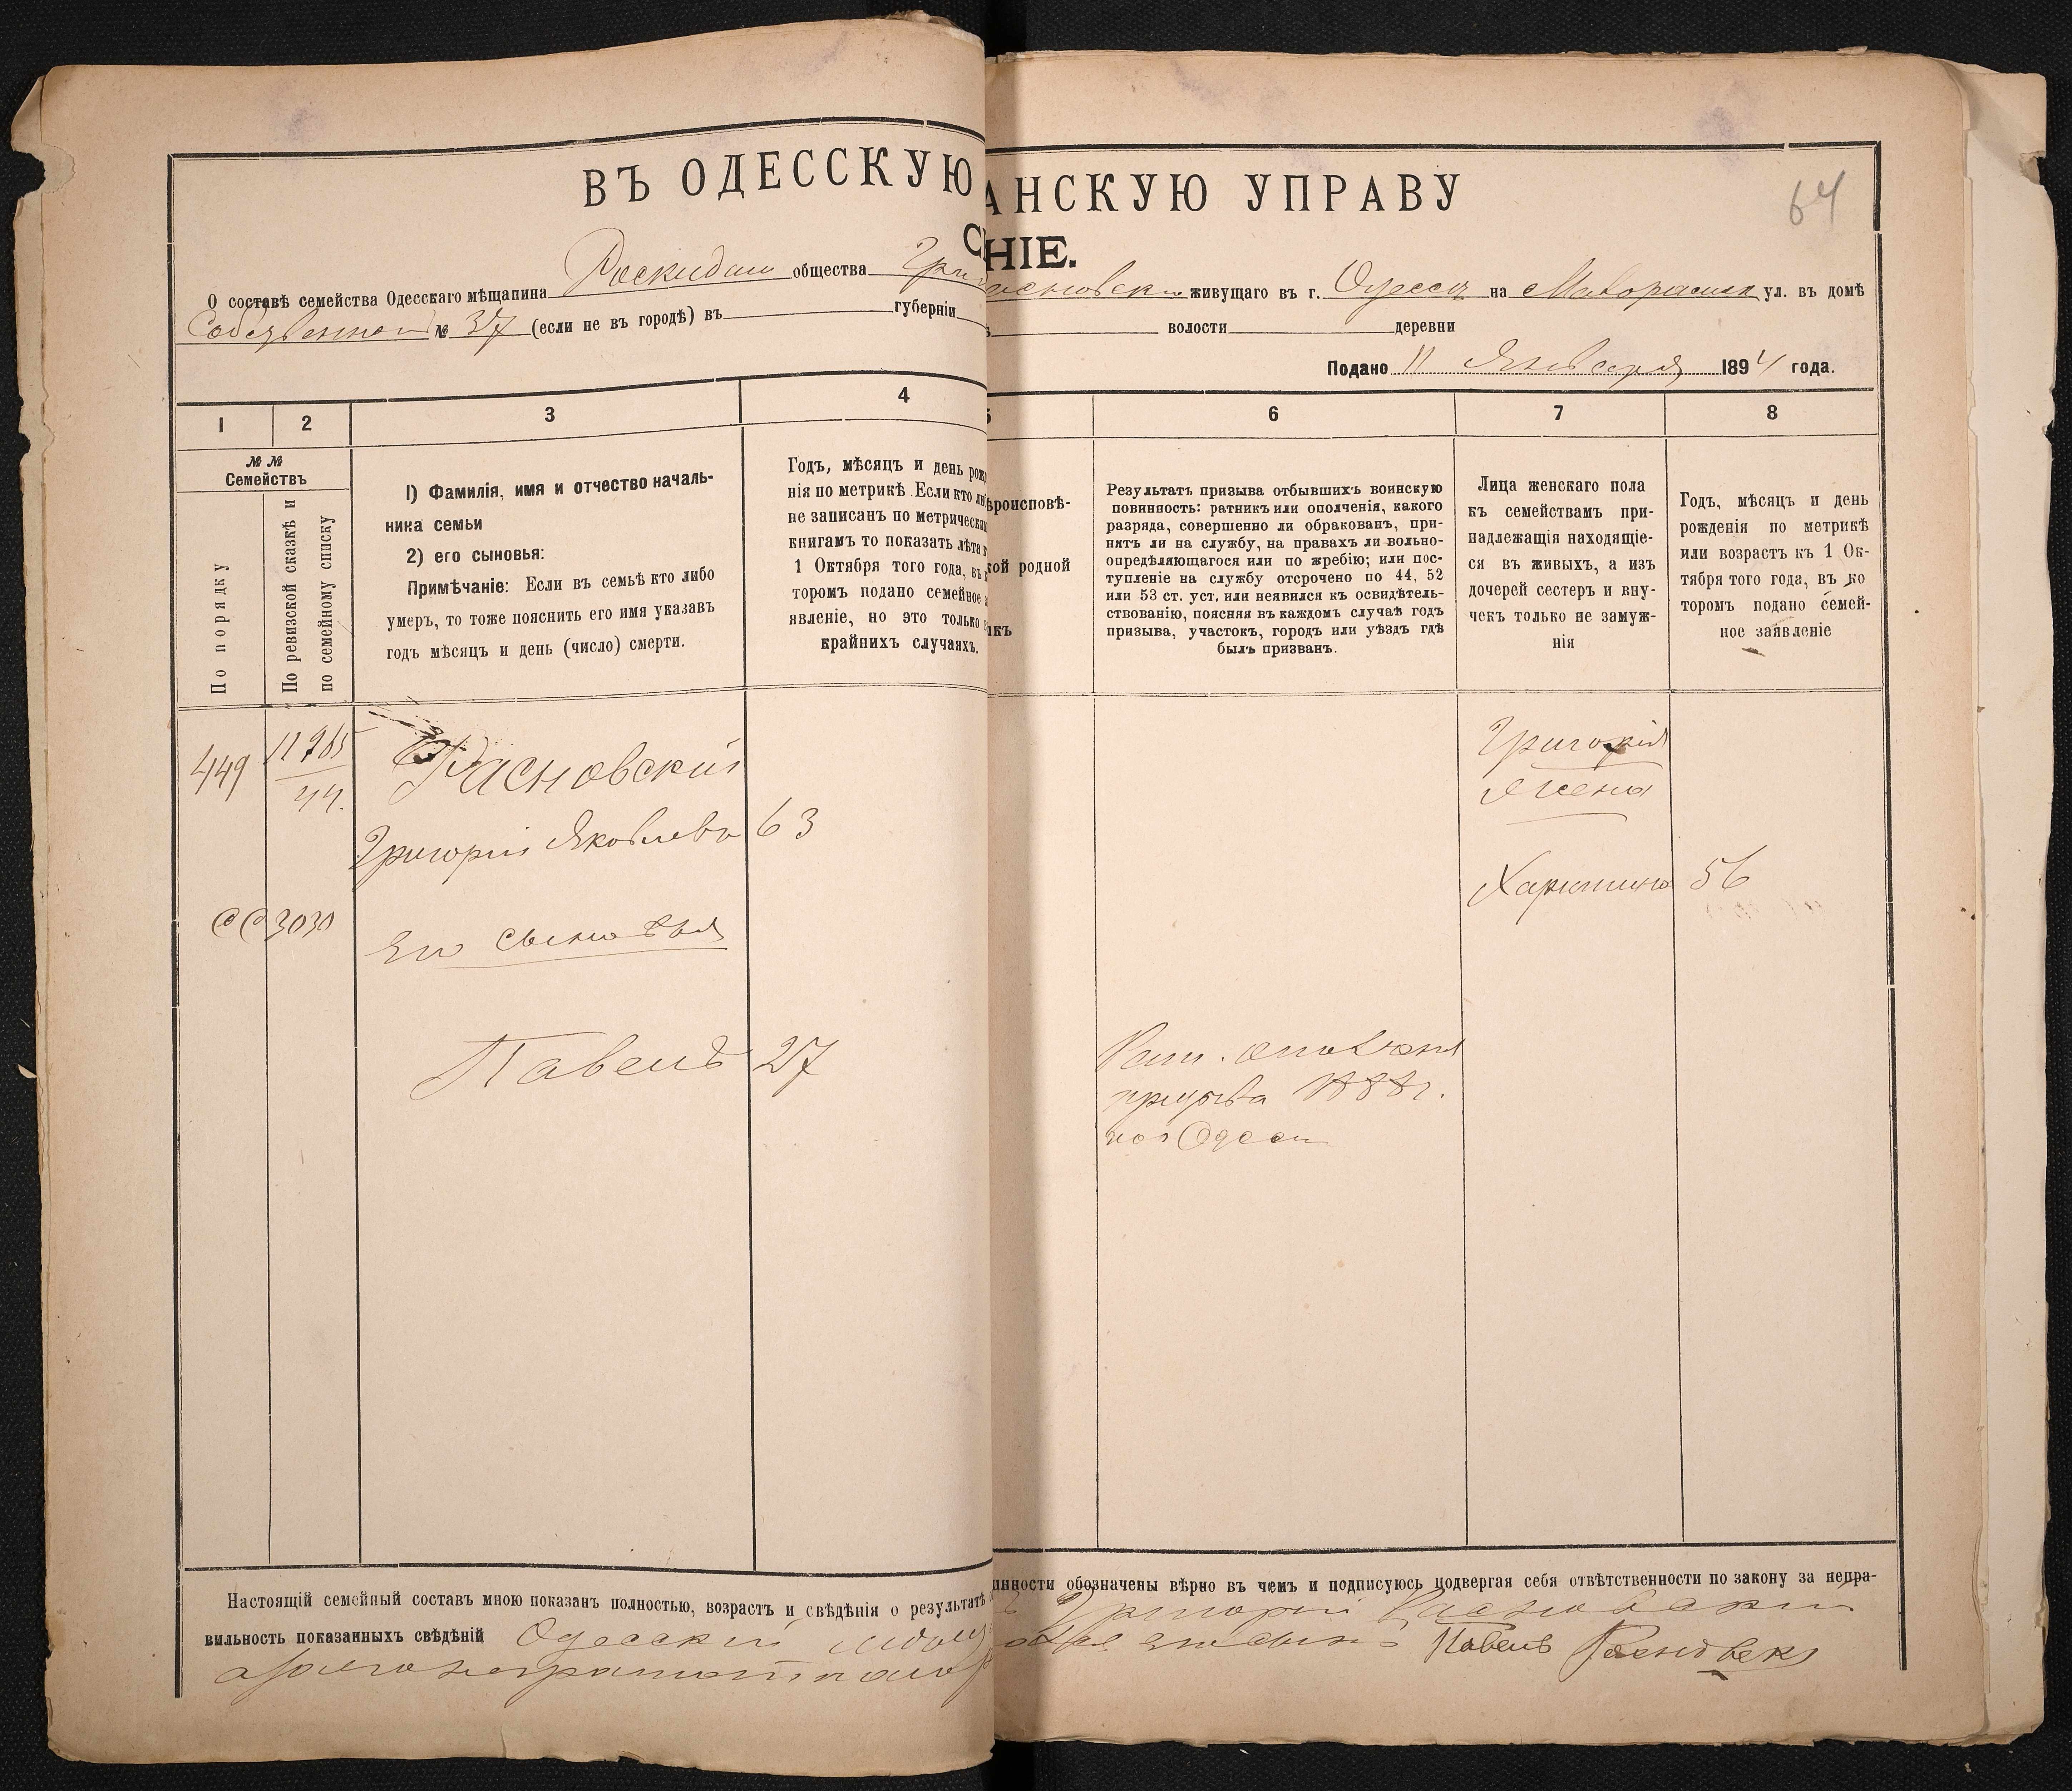 ВЪ ОДЕССКУЮ АНСКУЮ УПРАВУ
64
НІЕ.
О составѣ семейства Одесскаго мѣщанина общества Гри живущаго въ г. Одесса на ул. въ домѣ
Собственном № 37 (если не въ городѣ) въ губерніи волости деревни
Подано 11 Января 1894 года.
1 2 3 4 5 6 7 8
№ №
Семействъ
По порядку
По ревизской сказкѣ и
по семейному списку
1) Фамилія, имя и отчество началь-
ника семьи
2) его сыновья:
Примѣчаніе: Если въ семьѣ кто либо
умеръ, то тоже пояснить его имя указавъ
годъ мѣсяцъ и день (число) смерти.
Годъ, мѣсяцъ и день рож
нія по метрикѣ. Если кто ли
не записанъ по метрически
книгамъ то показать лѣта к
1 Октября того года, въ к
торомъ подано семейное з
явленіе, но это только в
крайнихъ случаяхъ.
ѣроисповѣ-
кой родной
икъ
Результатъ призыва отбывшихъ воинскую
повинность: ратникъ или ополченія, какого
разряда, совершенно ли обракованъ, при-
нятъ ли на службу, на правахъ ли вольно-
опредѣляющагося или по жребію; или пос-
тупленіе на службу отсрочено по 44, 52
или 53 ст. уст. или неявился къ освидѣтель-
ствованію, поясняя въ каждомъ случаѣ годъ
призыва, участокъ, городъ или уѣздъ гдѣ
былъ призванъ.
Лица женскаго пола
къ семействамъ при-
надлежащія находящіе-
ся въ живыхъ, а изъ
дочерей сестеръ и вну-
чекъ только не замуж-
нія
Годъ, мѣсяцъ и день
рожденія по метрикѣ
или возрастъ къ 1 Ок-
тября того года, въ ко
торомъ подано семей-
ное заявленіе
449
11985
44.
Расновскій
Григорій Яковлевъ 63
СС 3030
Его сыновья
Павелъ 27
Рат. ополчен
призыва 1888 г.
по г Одессы
Григорія
жена
Харитина 56
Настоящій семейный составъ мною показанъ полностью, возрастъ и свѣдѣнія о результатѣ инности обозначены вѣрно въ чемъ и подписуюсь подвергая себя отвѣтственности по закону за непра-
вильность показанныхъ свѣдѣній Одесскій Григорій Расновский
сынъ Павелъ Расновскі